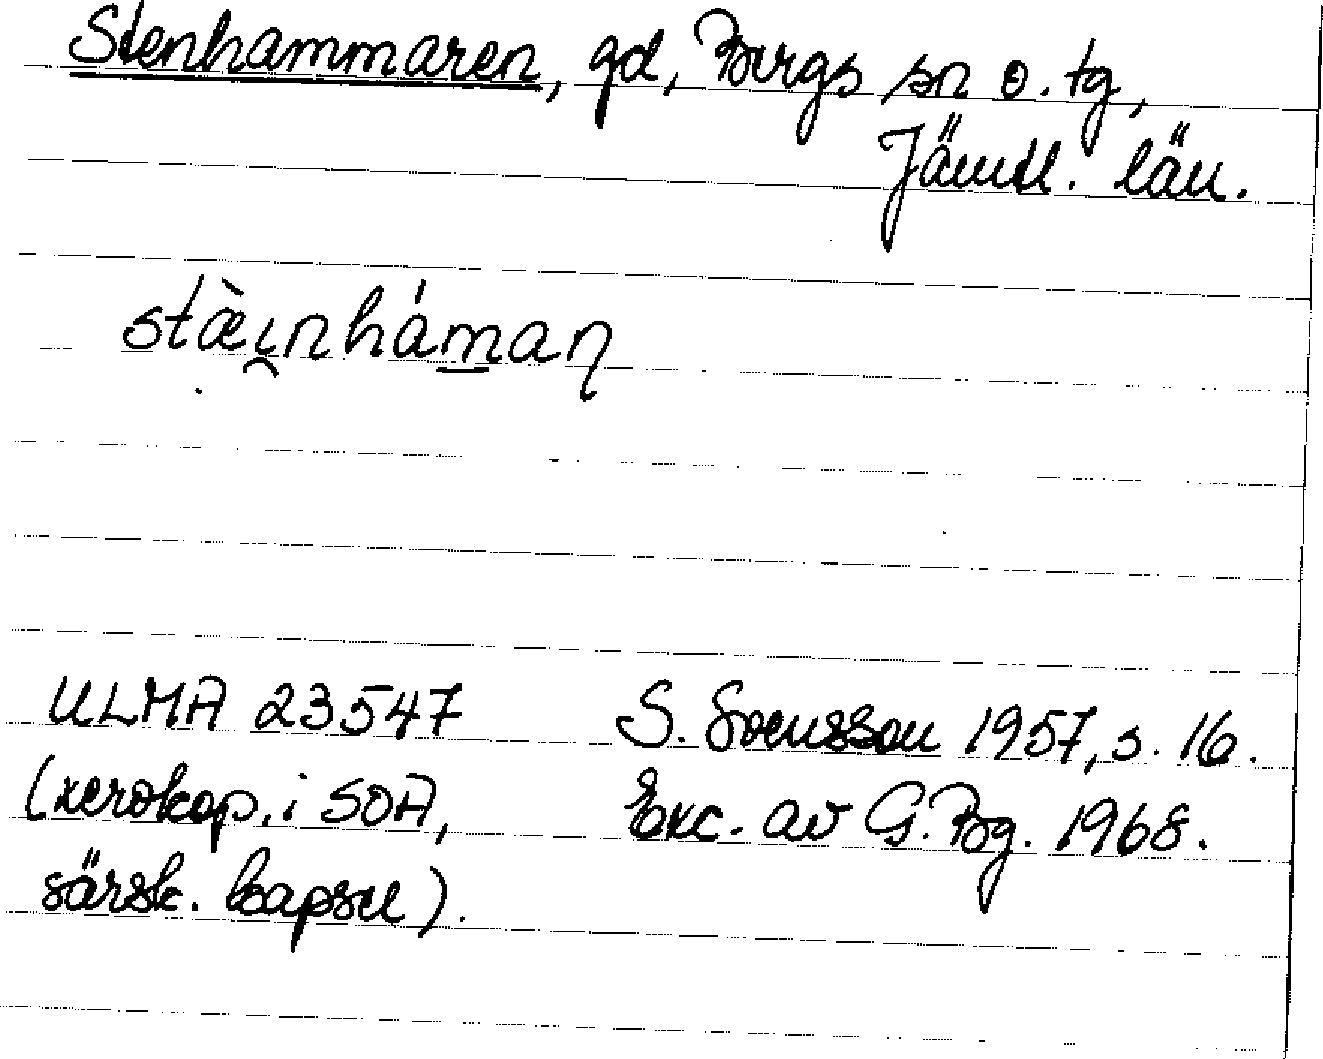 Stenhammaren, gd, Bergs sn o. tg,
Jämtl. län.
stæ̀i̯nhám̲aṇ
ULMA 23547 S. Svensson 1957, s. 16.
(xerokop. i SOA, Exc. av G. Bg. 1968.
särsk. kapsel).